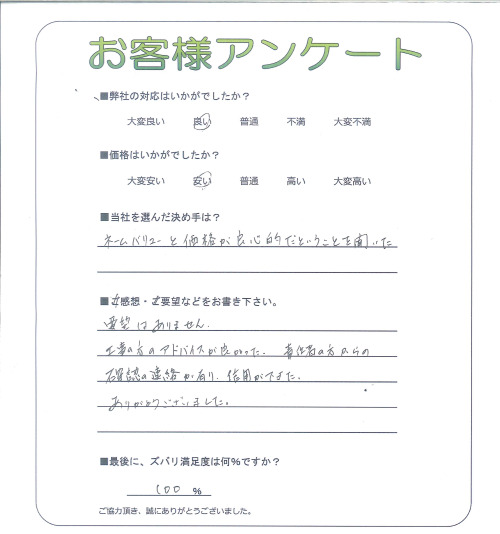 お客様アンケート
■弊社の対応はいかがでしたか？
大変良い 良い 普通 不満 大変不満
■価格はいかがでしたか？
大変安い 安い 普通 高い 大変高い
■当社を選んだ決め手は？
ネームバリューと価格が良心的だということを聞いた
■ご感想・ご要望などをお書き下さい。
要望はありません。
工事の方のアドバイスが良かった。責任者の方からの
確認の連絡が有り、信用ができた。
ありがとうございました。
■最後に、ズバリ満足度は何%ですか？
100 %
ご協力頂き、誠にありがとうございました。